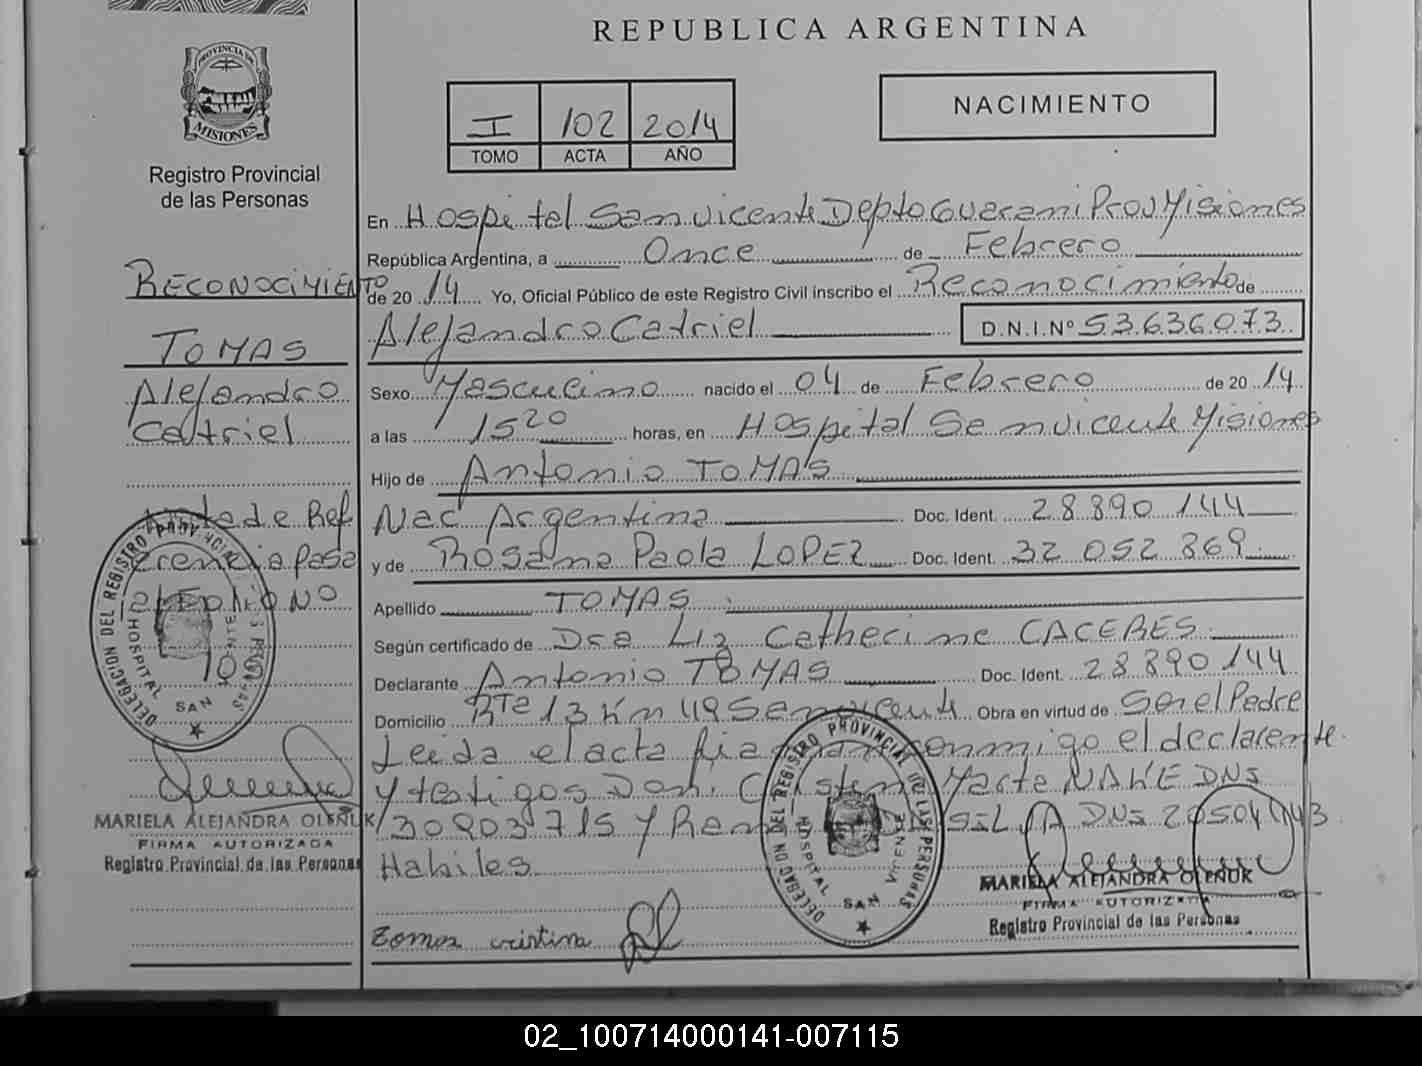 REPUBLICA ARGENTINA
PROVINCIA DE
MISIONES
Registro Provincial
de las Personas
I 102 2014
TOMO ACTA AÑO
NACIMIENTO
RECONOCIMIENTO
TOMAS
Alejandro
Catriel
Nota de Ref
erencia pasa
al Folio Nº
10
DELEGACION DEL REGISTRO PROVINCIAL
HOSPITAL SAN VICENTE
MARIELA ALEJANDRA OLEÑUK
FIRMA AUTORIZADA
Registro Provincial de las Personas
En Hospital San Vicente Depto Guarani Prov Misiones
República Argentina, a Once de Febrero
de 20 14 Yo, Oficial Público de este Registro Civil inscribo el Reconocimiento de
Alejandro Catriel D.N.I.Nº 53.636.073
Sexo Masculino nacido el 04 de Febrero de 20 14
a las 15 20 horas, en Hospital San Vicente Misiones
Hijo de Antonio TOMAS
Nac Argentina Doc. Ident. 28 890 144
y de Rosana Paola LOPEZ Doc. Ident. 32 052 869
Apellido TOMAS
Según certificado de Dra Liz Catherine CACERES
Declarante Antonio TOMAS Doc. Ident. 28 890 144
Domicilio Rta 13 Km 49 San Vicente Obra en virtud de Ser el Padre
Leida el acta firman conmigo el declarante
y testigos Doña Cristina Marte DNI
30903715 y DA SILVA DNI
Habiles
DELEGACION DEL REGISTRO PROVINCIAL DE LAS PERSONAS
HOSPITAL SAN VICENTE
MARIELA ALEJANDRA OLEÑUK
FIRMA AUTORIZADA
Registro Provincial de las Personas
cristina
02_100714000141-007115